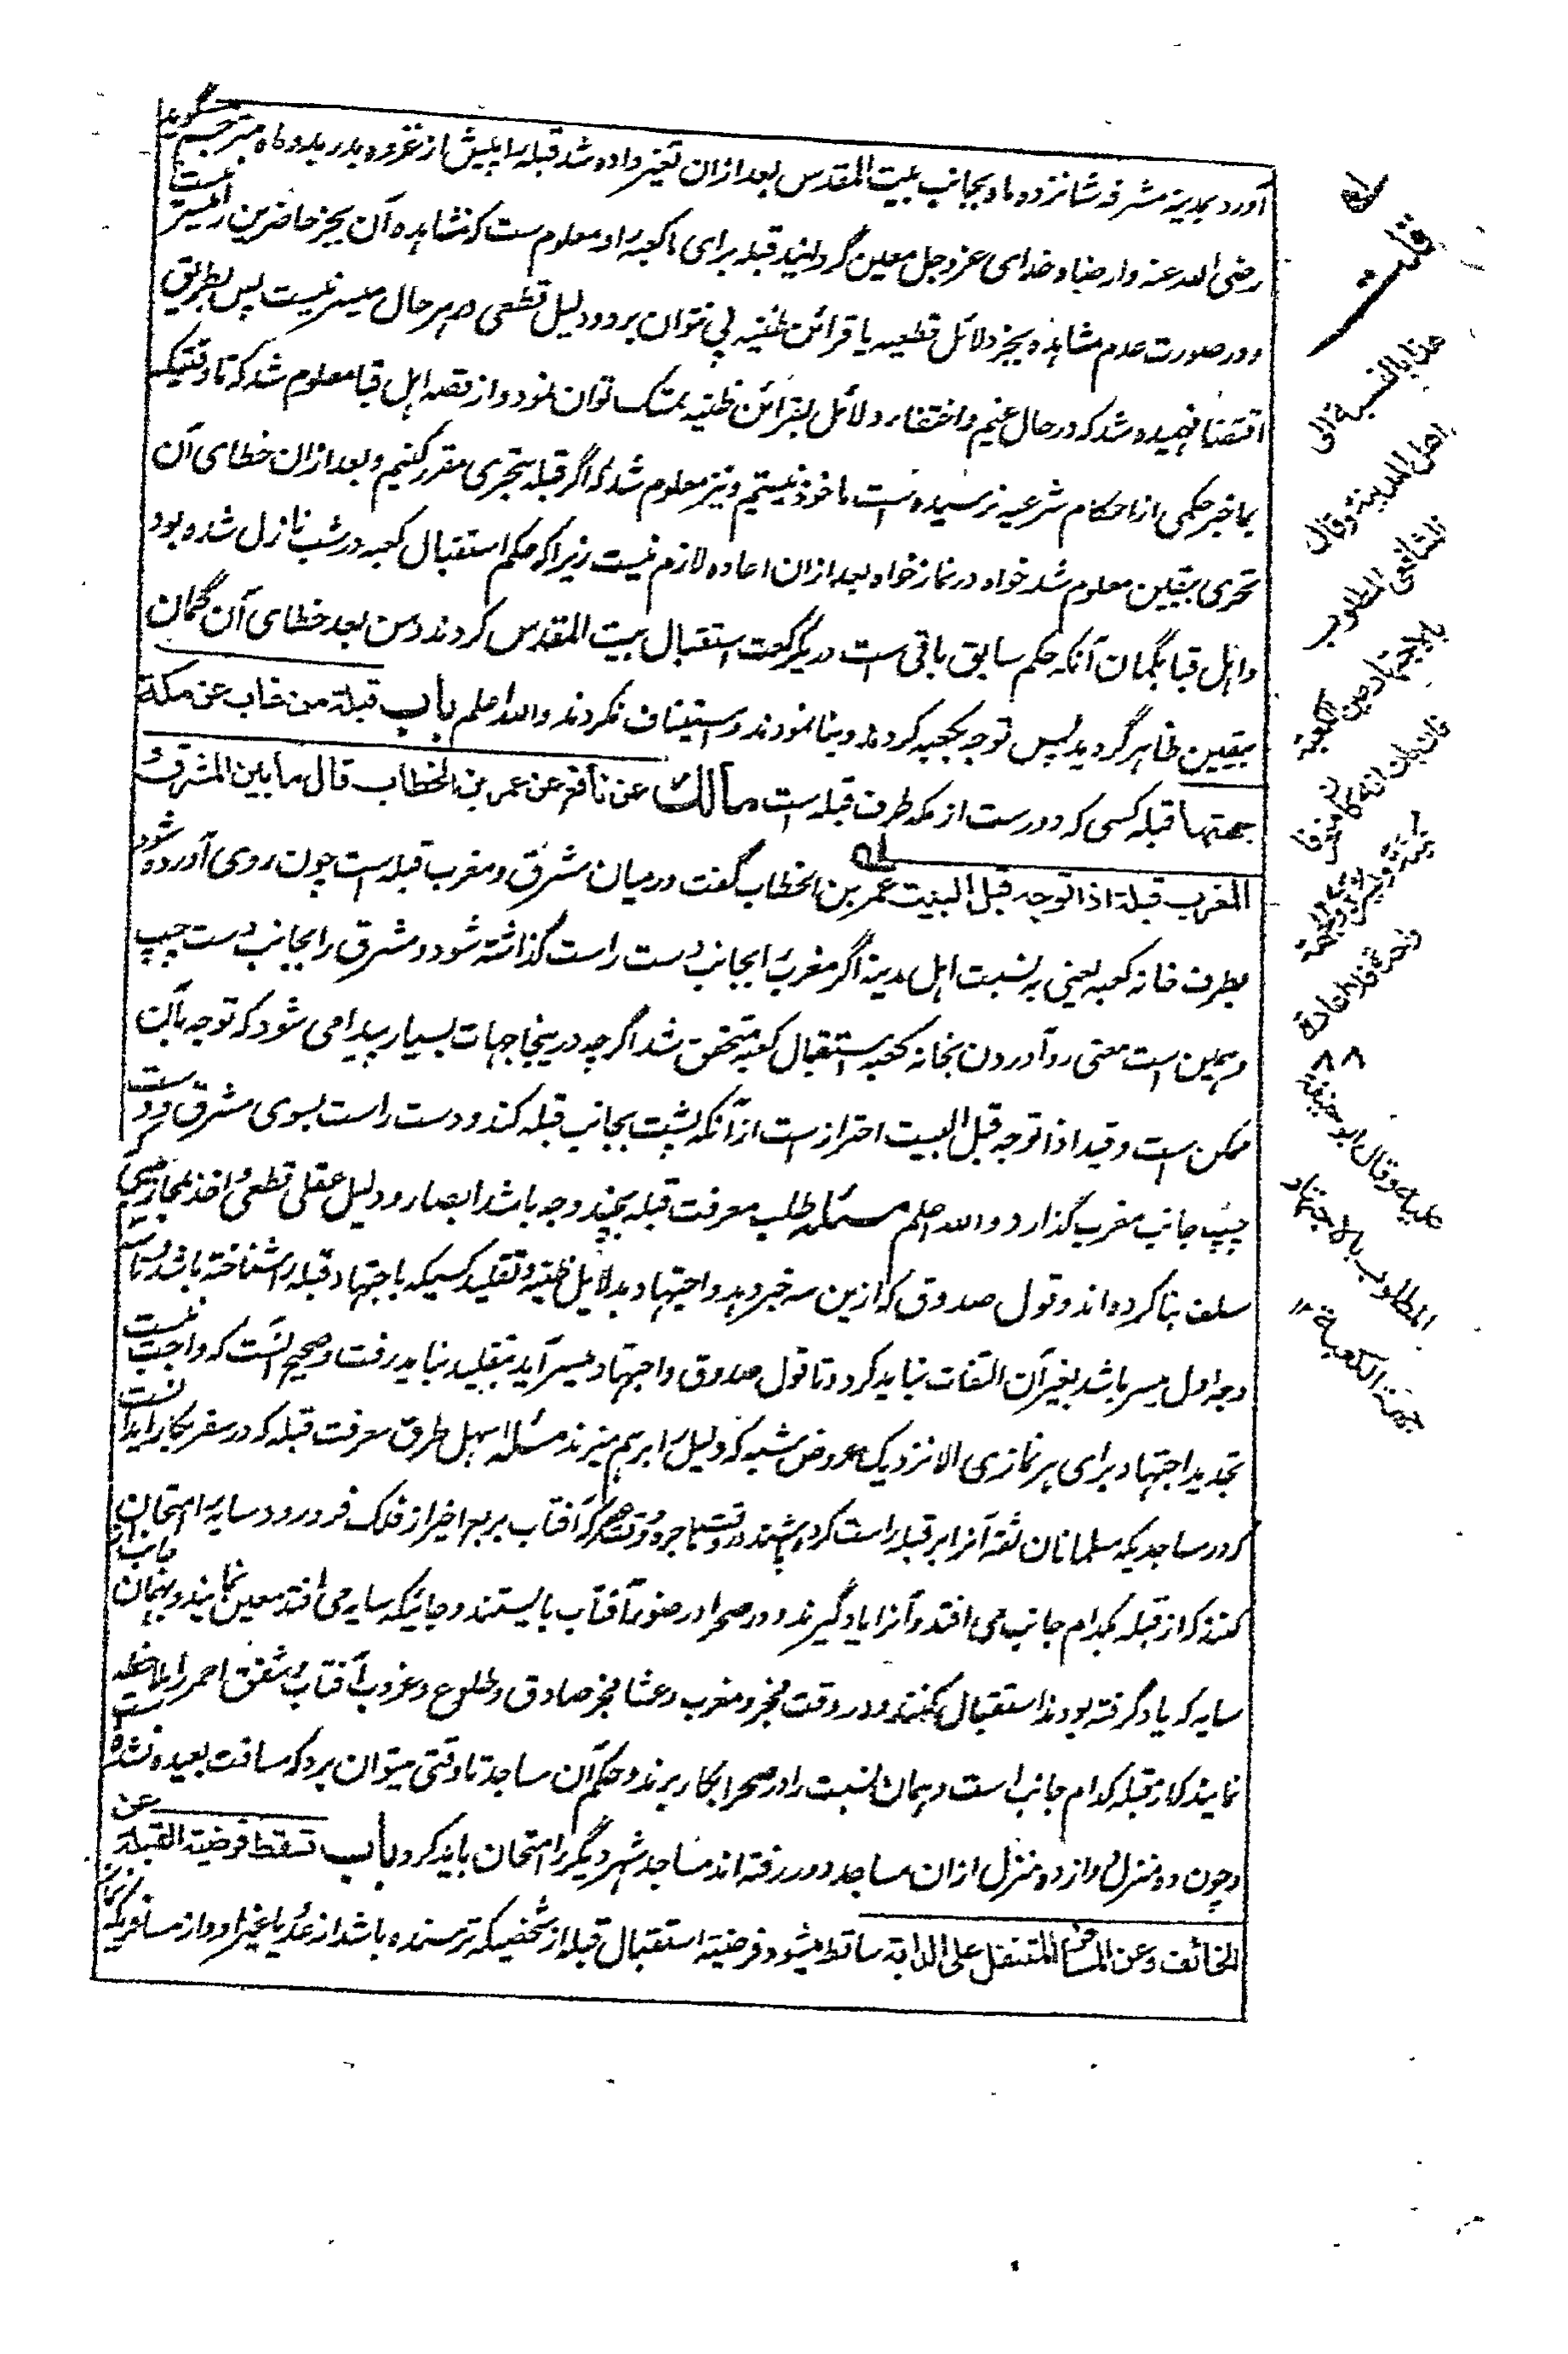 آورد بمدینه مشرفه شانزده ماه بجانب بیت المقدس بعد ازان تغیر داده شد قبله را پیش از غزوه بدر بدو ماه مترجم گوید
رضی الله عنه وارضاه خدای عز وجل معین گردانید قبله برای ما کعبه را و معلوم ست که مشاهده آن بجز حاضرین را میسر نیست
و در صورت عدم مشاهده بجز دلائل قطعیه یا قرائن ظنیه پی نتوان برد و دلیل قطعی در هر حال میسر نیست پس بطریق
اقتضا فهمیده شد که در حال غیم و اختفاء دلائل بقرائن ظنیه تمسک توان نمود و از قصه اهل قبا معلوم شد که تا وقتیکه
بما خبر حکمی از احکام شرعیه نرسیده است ماخوذ نیستیم و نیز معلوم شد که اگر قبله بتحری مقرر کنیم و بعد ازان خطای آن
تحری بیقین معلوم شد خواه در نماز خواه بعد ازان اعاده لازم نیست زیرا که حکم استقبال کعبه در شب نازل شده بود
و اهل قبا بگمان آنکه حکم سابق باقی ست در یک رکعت استقبال بیت المقدس کردند و من بعد خطای آن گمان
بیقین ظاهر گردید پس توجه بکعبه کردند و بنا نمودند و استیناف نکردند والله اعلم باب قبلة من غاب عن مکة
جهتها قبله کسی که دورست از مکه طرف قبله است مالک عن نافع عن عمر بن الخطاب قال ما بین المشرق و
المغرب قبلة اذا توجه قبل البیت عمر بن الخطاب گفت در میان مشرق و مغرب قبله است چون روی آورده شود
بطرف خانه کعبه یعنی به نسبت اهل مدینه اگر مغرب را بجانب دست راست گذاشته شود و مشرق را بجانب دست چپ
و همین است معنی رو آوردن بخانه کعبه استقبال کعبه متحقق شد اگرچه در ینجا جهات بسیار پیدا می شود که توجه بآن
ممکن است و قید اذا توجه قبل البیت احتراز است از آنکه پشت بجانب قبله کند و دست راست بسوی مشرق و دست
چپ جانب مغرب گذارد والله اعلم مسئله طلب معرفت قبله بچند وجه باشد ابصار و دلیل عقلی قطعی و اخذ بمحاریبی که
سلف بنا کرده اند و قول صدوق که ازین سه خبر دهد و اجتهاد بدلایل ظنیه و تقلید کسیکه باجتهاد قبله را شناخته باشد و تا
وجه اول میسر باشد بغیر آن التفات نباید کرد و تا قول صدوق و اجتهاد میسر آید بتقلید نباید رفت و صحیح آنست که واجب نیست
تجدید اجتهاد برای هر نمازی الا نزدیک عروض شبه که دلیل را برهم میزند مسئله اسهل طرق معرفت قبله که در سفر بکار آید آنست
که در مساجدیکه مسلمانان ثقه آنرا بر قبله راست کرده باشند در وقت هاجره و وقت عصر که آفتاب بربع اخیر از فلک فرو رود سایه را امتحان
کنند که از قبله بکدام جانب می افتد و آنرا یاد گیرند و در صحرا در ضوء آفتاب بایستند و جائیکه سایه می افتد معین نمایند و بهمان جانب از
سایه که یاد گرفته بودند استقبال کنند و در وقت فجر و مغرب و عشا فجر صادق و طلوع و غروب آفتاب و شفق احمر را ملاحظه
نمایند که از قبله کدام جانب است و همان نسبت را در صحرا بکار برند و حکم آن مساجد تا وقتی میتوان برد که مسافت بعیده نشده است
و چون ده منزل دوازده منزل ازان مساجد دور رفته اند مساجد شهر دیگر را امتحان باید کرد باب تسقط فرضیة القبلة عن
الخائف وعن المسافر المتنفل علی الدابة ساقط میشود فرضیة استقبال قبله از شخصیکه ترسنده باشد از عدو یا غیر او و از مسافریکه
له قلت
هذا بالنسبة الی
اهل المدینة وقال
الشافعی المطلوب
بالاجتهاد عین الکعبة
فان بان انه کان منحرفا
علیه وقال ابو حنیفة
المطلوب بالاجتهاد
جهة الکعبة ۱۲